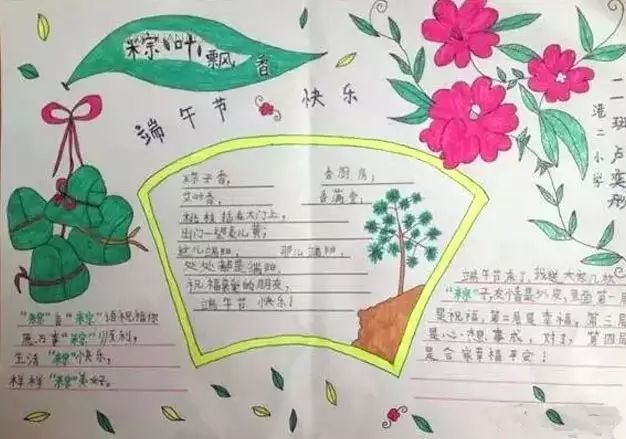 粽叶飘香
端午节 快乐
二一班 卢奕彤
港二小学
粽子香, 香厨房;
艾叶香, 香满堂;
桃枝插在大门上,
出门一望麦儿黄;
这儿端阳, 那儿端阳,
处处都是端阳,
祝福亲爱的朋友,
端午节快乐!
"粽"与"粽"语祝福您
愿万事"粽"顺利,
生活"粽"快乐,
样样"粽"美好。
端午节来了,我送大家几款
"粽"子,友情是外皮,里面第一层
是祝福,第二层是幸福,第三层
是心想事成,对了,第四层
是合家幸福平安!